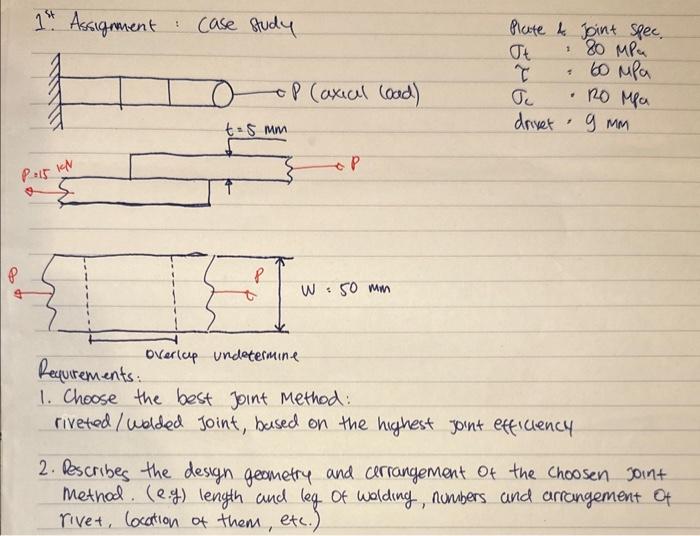 1st. Assignment : Case Study
Plate & Joint Spec.
σt : 80 MPa
τ : 60 MPa
σc : 120 MPa
drivet : 9 mm
P (axial load)
t = 5 mm
P = 15 kN
P
P
P
W = 50 mm
Overlap undetermine
Requirements:
1. Choose the best Joint Method:
riveted / welded Joint, based on the highest joint efficiency
2. Describes the design geometry and arrangement of the choosen joint
Method. (e.g) length and leg of welding, numbers and arrangement of
rivet, location of them, etc.)